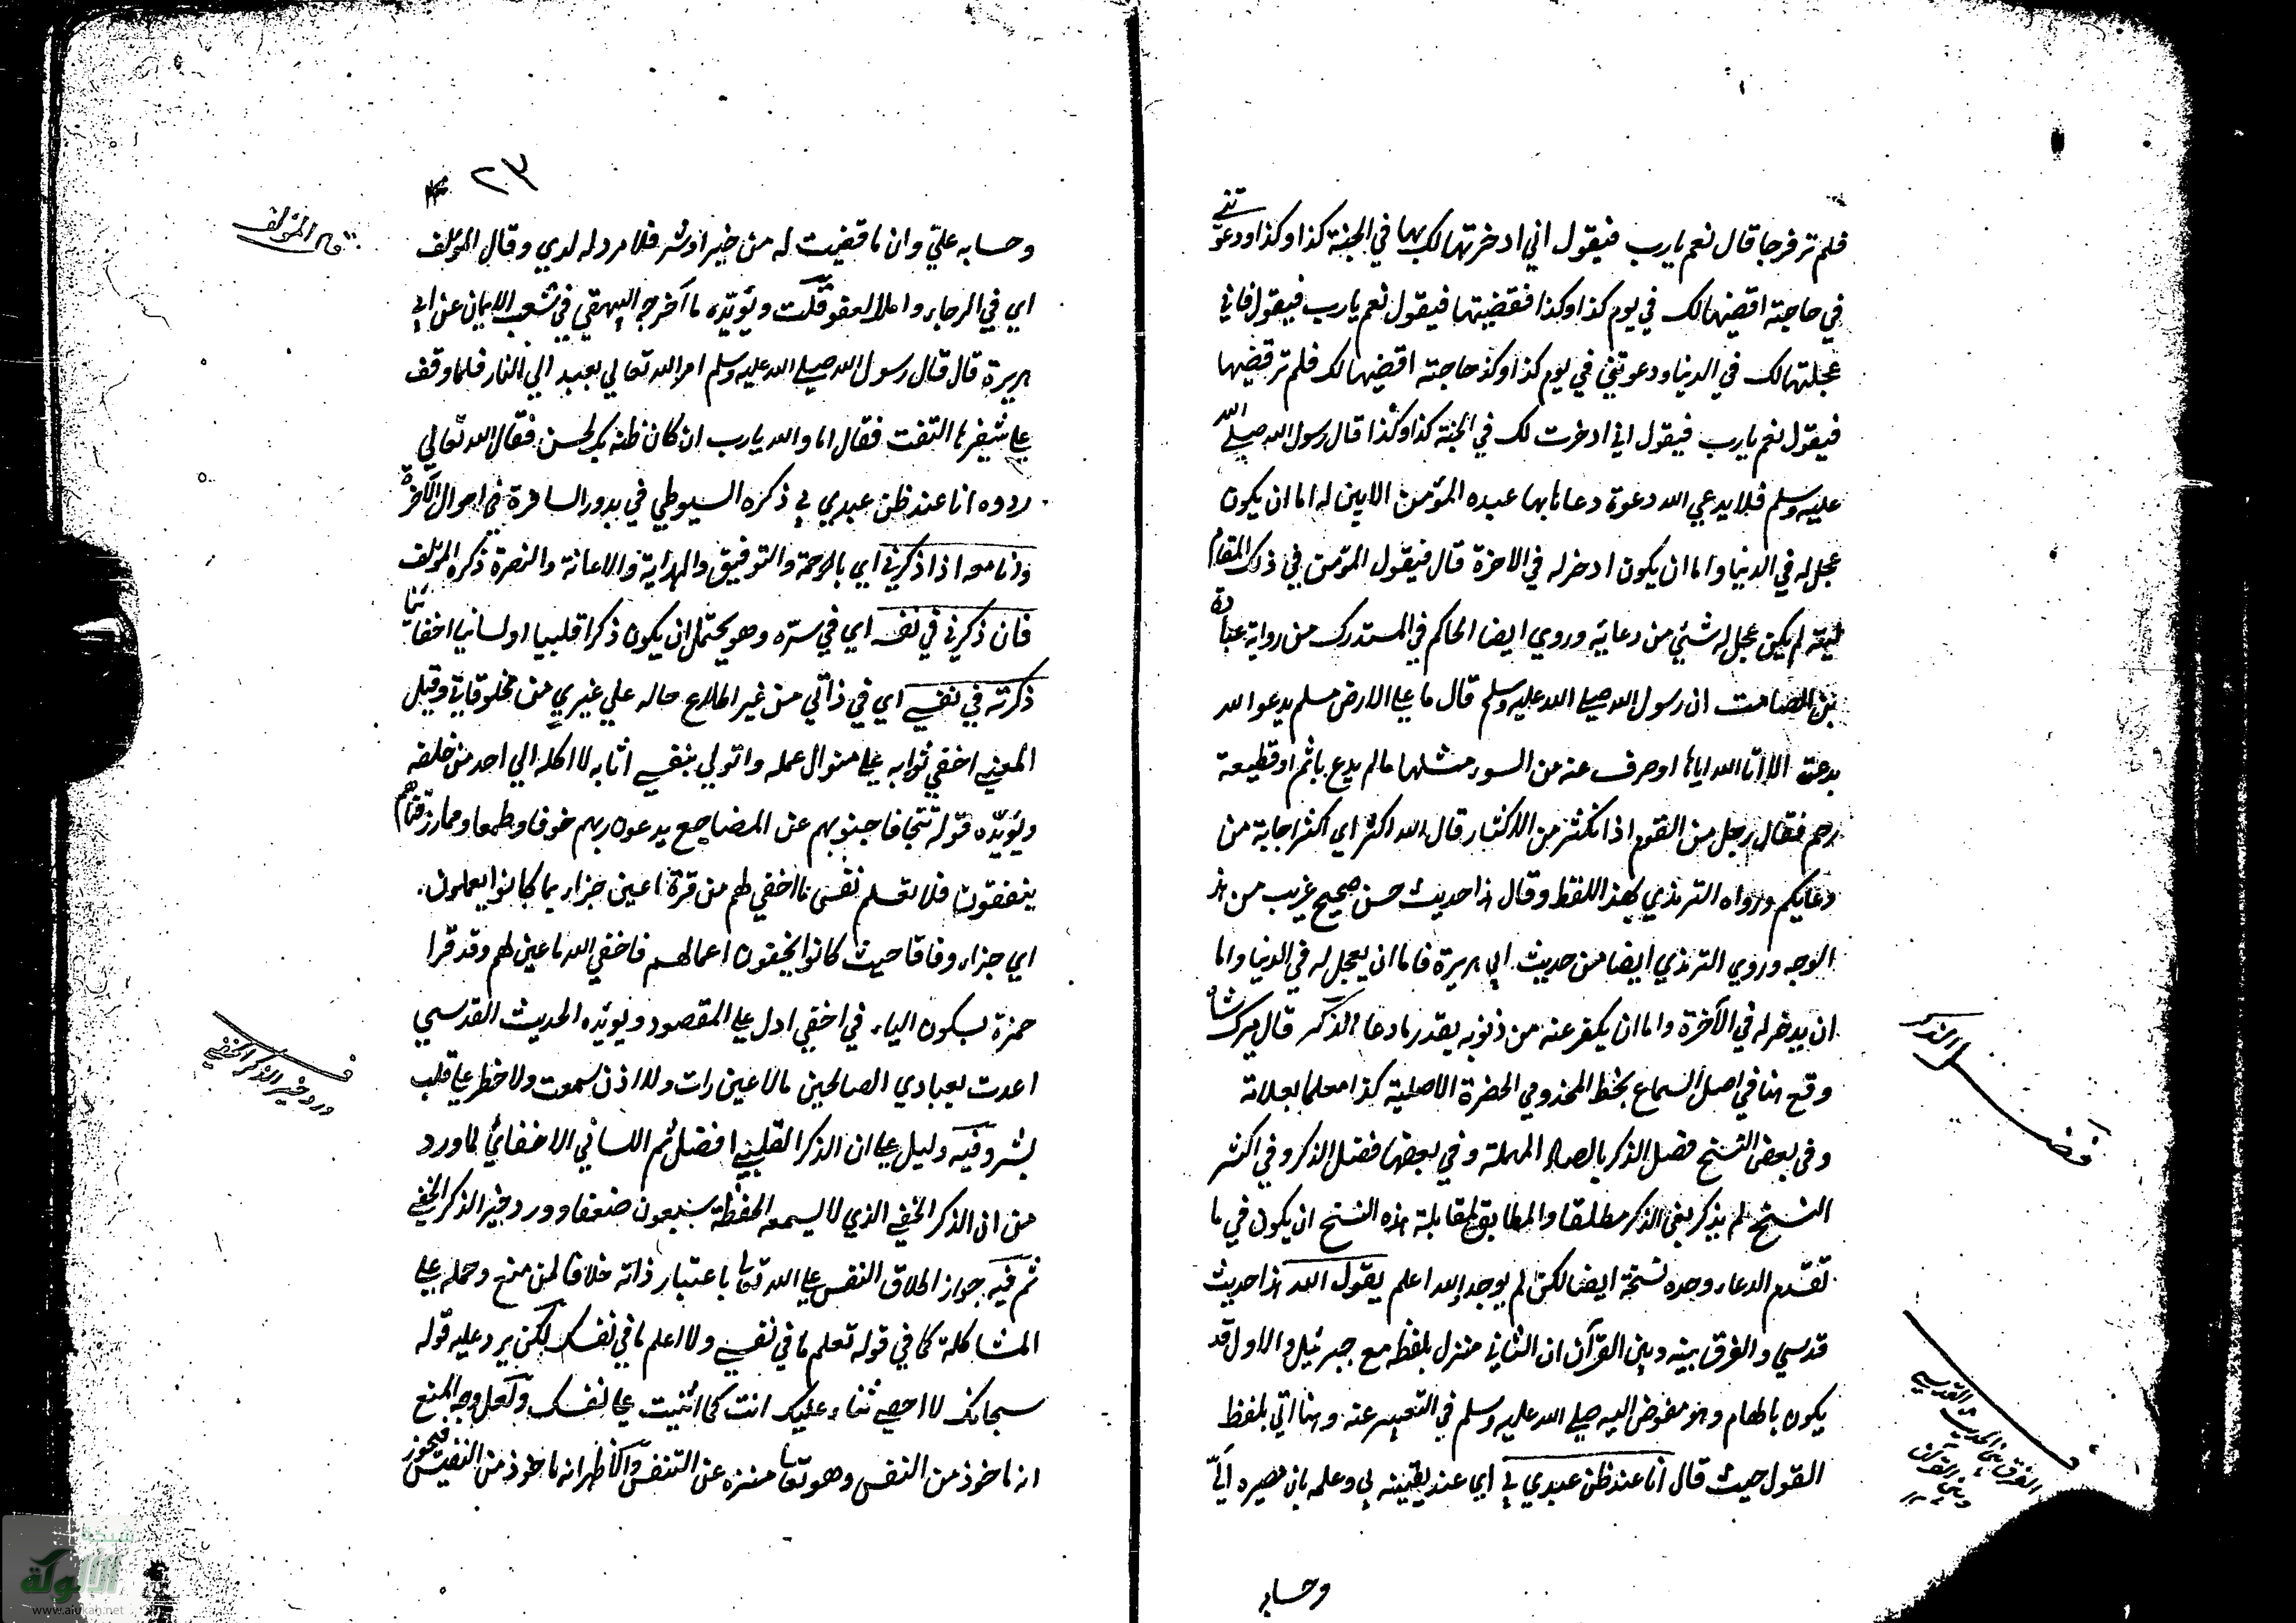 فلم تر فرجا قال نعم يارب فيقول اني ادخرتها لك بها في الجنة كذا وكذا ودعوتني
في حاجة اقضيها لك في يوم كذا وكذا فقضيتها فيقول نعم يارب فيقول فاني
عجلتها لك في الدنيا ودعوتني في يوم كذا وكذ حاجة اقضيها لك فلم تر قضيها
فيقول نعم يارب فيقول اني ادخرت لك في الجنة كذا وكذا قال رسول الله صلى الله
عليه وسلم فلا يدعي الله دعوة دعا بها عبده المؤمن الا بين له اما ان يكون
عجل له في الدنيا واما ان يكون ادخر له في الاخرة قال فيقول المؤمن في ذلك المقام
ليته لم يكن عجل له شئ من دعائه وروي ايضا الحاكم في المستدرك من رواية عبادة
بن الصامت ان رسول الله صلى الله عليه وسلم قال ما على الارض مسلم يدعو الله
بدعوة الا اتا الله اياها او صرف عنه من السوء مثلها ما لم يدع باثم او قطيعة
رحم فقال رجل من القوم اذا نكثر من الاكثار قال الله اكثر اي اكثر اجابة من
دعايكم ورواه الترمذي بهذا اللفظ وقال هذا حديث حسن صحيح غريب من هذ
الوجه وروي الترمذي ايضا من حديث ابي هريرة فاما ان يعجل له في الدنيا واما
ان يدخر له في الآخرة واما ان يكفر عنه من ذنوبه بقدر ما دعا الذكر قال ميرك شاه
وقع هنا في اصل السماع بخط المخدومي الحضرة الاصلية كذا معلما بعلامة
وفي بعض النسخ فصل الذكر بالصاد المهملة وفي بعضها فضل الذكر وفي اكثر
النسخ لم يذكر بقي الذكر مطلقا والمطابق لمقابلة هذه النسخ ان يكون في ما
تقدم الدعاء وحده نسخة ايضا لكن لم يوجد والله اعلم يقول الله هذا حديث
قدسي والفرق بينه وبين القرآن ان الثاني منزل بلفظه مع جبرئيل والاول قد
يكون بالهام وهو مفوض اليه صلى الله عليه وسلم في التعبير عنه وهنا اتي بلفظ
القول حيث قال انا عند ظن عبدي بي اي عند يقينه بي وعلمه بان مصيره الي
وحسابه
الذكر
فضل
الفرق بين الحديث القدسي
وبين القرآن
٢٣
وحسابه علي وان ما قضيت له من خير او شر فلا مرد له لدي وقال المؤلف
اي في الرجاء وامل العفو قلت ويؤيده ما اخرجه البيهقي في شعب الايمان عن ابي
هريرة قال قال رسول الله صلى الله عليه وسلم امر الله تعالي بعبد الي النار فلما وقف
على شفيرها التفت فقال اما والله يارب ان كان ظنه بك لحسن فقال الله تعالي
ردوه انا عند ظن عبدي بي ذكره السيوطي في بدور السافرة في احوال الآخرة
وانا معه اذا ذكرني اي بالرحمة والتوفيق والهداية والاعانة والنصرة ذكره المؤلف
فان ذكرني في نفسه اي في سره وهو يحتمل ان يكون ذكرا قلبيا او لسانيا اخفائيا
ذكرته في نفسي اي في ذاتي من غير اطلاع حاله علي غيري من مخلوقاتي وقيل
المعنى اخفي ثوابه على منوال عمله واتولي بنفسي اثابه لا اكله الي احد من خلقه
ويؤيده قوله تتجافا جنوبهم عن المضاجع يدعون ربهم خوفا وطمعا ومما رزقناهم
ينفقون فلا تعلم نفس ما اخفي لهم من قرة اعين جزاء بما كانوا يعملون
اي جزاء وفاقا حيث كانوا يخفون اعمالهم فاخفي الله ما عين لهم وقد قرا
حمزة بسكون الياء في اخفي ادل على المقصود ويؤيده الحديث القدسي
اعدت لعبادي الصالحين ما لا عين رات ولا اذن سمعت ولا خطر على قلب
بشر وفيه دليل على ان الذكر القلبي افضل ثم اللساني الاخفائي لما ورد
من ان الذكر الخفي الذي لا يسمعه الحفظة سبعون ضعفا وورد خير الذكر الخفي
ثم فيه جواز اطلاق النفس على الله تعا باعتبار ذاته خلافا لمن منع وحمله على
المشاكلة كما في قوله تعلم ما في نفسي ولا اعلم ما في نفسك لكن يرد عليه قوله
سبحانك لا احصي ثناء عليك انت كما اثنيت على نفسك ولعل وجه المنع
انه ماخوذ من النفس وهو تعا منزه عن التنفس والاظهر انه ماخوذ من النفيس فيجوز
قال المؤلف
ورد خير الذكر الخفي